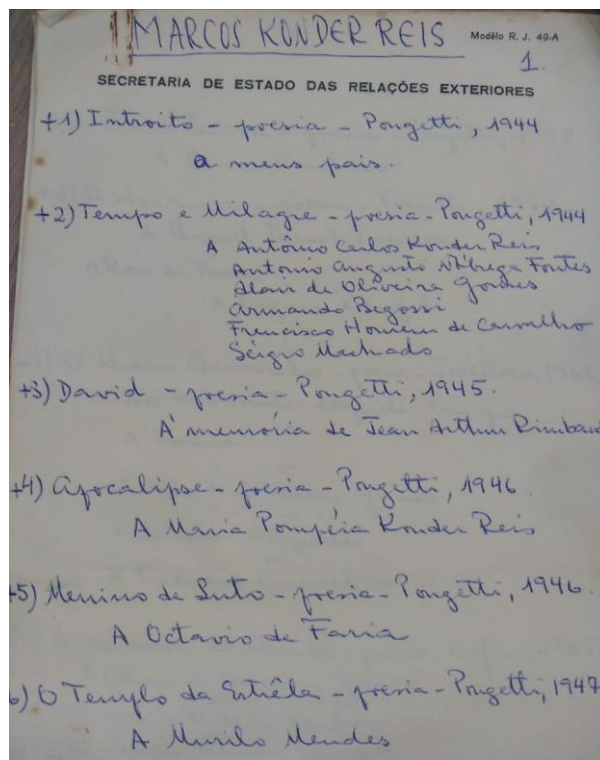 MARCOS KONDER REIS
Modêlo R. J. 49-A
1.
SECRETARIA DE ESTADO DAS RELAÇÕES EXTERIORES
+1) Introito - poesia - Pongetti, 1944
a meus pais.
+2) Tempo e Milagre - poesia - Pongetti, 1944
A Antônio Carlos Konder Reis
Antonio Augusto Nóbrega Fontes
Alair de Oliveira Gomes
Armando Begossi
Francisco Homem de Carvalho
Sérgio Machado
+3) David - poesia - Pongetti, 1945.
À memória de Jean Arthur Rimbau
+4) Apocalipse - poesia - Pongetti, 1946
A Maria Pompéia Konder Reis
+5) Menino de Luto - poesia - Pongetti, 1946.
A Octavio de Faria
6) O Templo da Estrêla - poesia - Pongetti, 1947
A Murilo Mendes